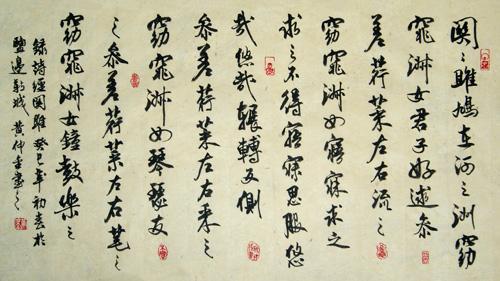 關〻雎鳩在河之洲窈
窕淑女君子好逑參
差荇菜左右流之
窈窕淑女寤寐求之
求之不得寤寐思服悠
哉悠哉輾轉反側
參差荇菜左右采之
窈窕淑女琴瑟友
之參差荇菜左右芼之
窈窕淑女鐘鼓樂之
錄詩經關雎癸巳年初春於
鹽邊新城 黄仲書之